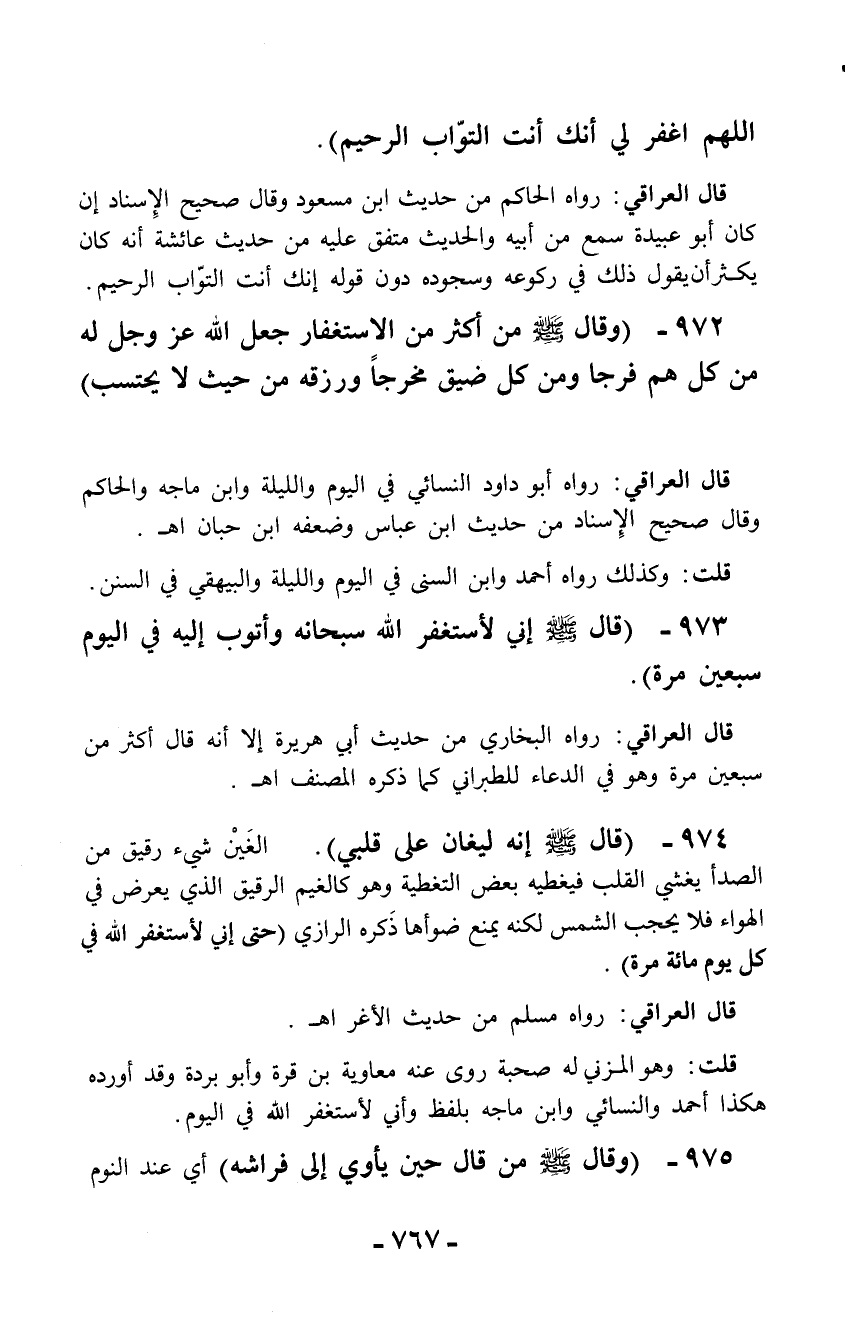 اللهم اغفر لي أنك أنت التوّاب الرحيم).
قال العراقي: رواه الحاكم من حديث ابن مسعود وقال صحيح الإِسناد إن
كان أبو عبيدة سمع من أبيه والحديث متفق عليه من حديث عائشة أنه كان
يكثر أن يقول ذلك في ركوعه وسجوده دون قوله إنك أنت التوّاب الرحيم.
٩٧٢ ـ (وقال ﷺ من أكثر من الاستغفار جعل الله عز وجل له
من كل هم فرجا ومن كل ضيق مخرجاً ورزقه من حيث لا يحتسب)
قال العراقي: رواه أبو داود النسائي في اليوم والليلة وابن ماجه والحاكم
وقال صحيح الإِسناد من حديث ابن عباس وضعفه ابن حبان اهـ .
قلت: وكذلك رواه أحمد وابن السنى في اليوم والليلة والبيهقي في السنن.
٩٧٣ ـ (قال ﷺ إني لأستغفر الله سبحانه وأتوب إليه في اليوم
سبعين مرة).
قال العراقي: رواه البخاري من حديث أبي هريرة إلا أنه قال أكثر من
سبعين مرة وهو في الدعاء للطبراني كما ذكره المصنف اهـ .
٩٧٤ ـ (قال ﷺ إنه ليغان على قلبي). الغَينْ شيء رقيق من
الصدأ يغشي القلب فيغطيه بعض التغطية وهو كالغيم الرقيق الذي يعرض في
الهواء فلا يحجب الشمس لكنه يمنع ضوأها ذَكره الرازي (حتى إني لأستغفر الله في
كل يوم مائة مرة) .
قال العراقي: رواه مسلم من حديث الأغر اهـ .
قلت: وهو المـزني له صحبة روى عنه معاوية بن قرة وأبو بردة وقد أورده
هكذا أحمد والنسائي وابن ماجه بلفظ وأني لأستغفر الله في اليوم.
٩٧٥ ـ (وقال ﷺ من قال حين يأوي إلى فراشه) أي عند النوم
ـ ٧٦٧ ـ